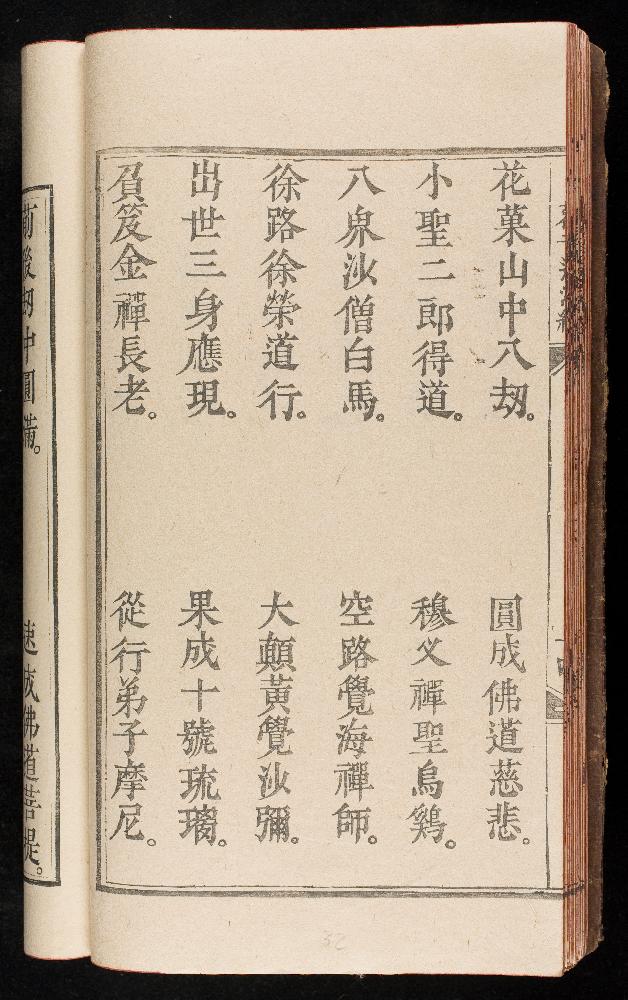 花菓山中八劫。 圓成佛道慈悲。
小聖二郎得道。 穆乂禪聖鳥鷄。
八泉沙僧白馬。 空路覺海禪師。
徐路徐榮道行。 大顛黃覺沙彌。
出世三身應現。 果成十號琉璃。
負笈金禪長老。 從行弟子摩尼。
前後劫中圓滿。 速成佛道菩提。
32